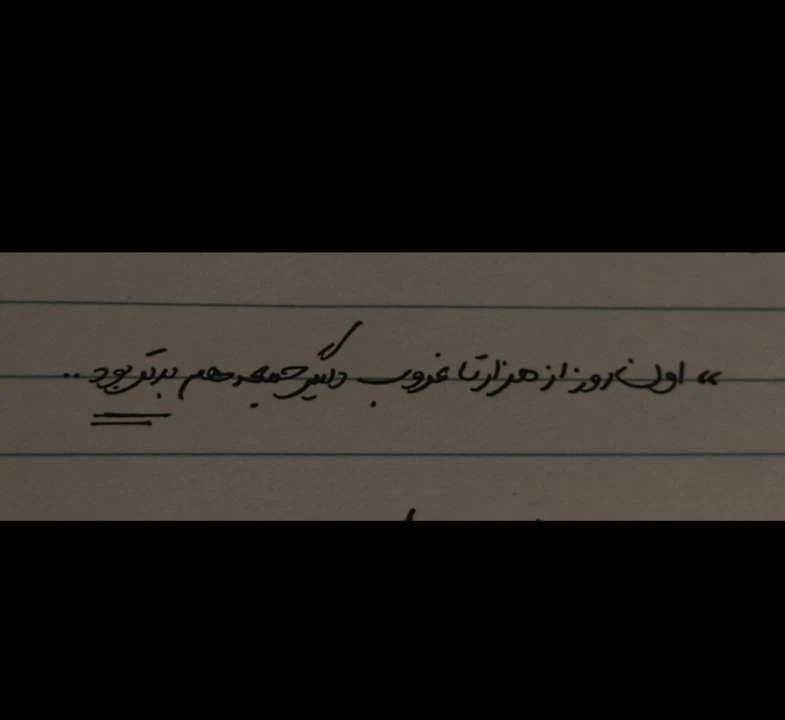 « اون روز از هزارتا غروب دلگیر جمعه هم بدتر بود..